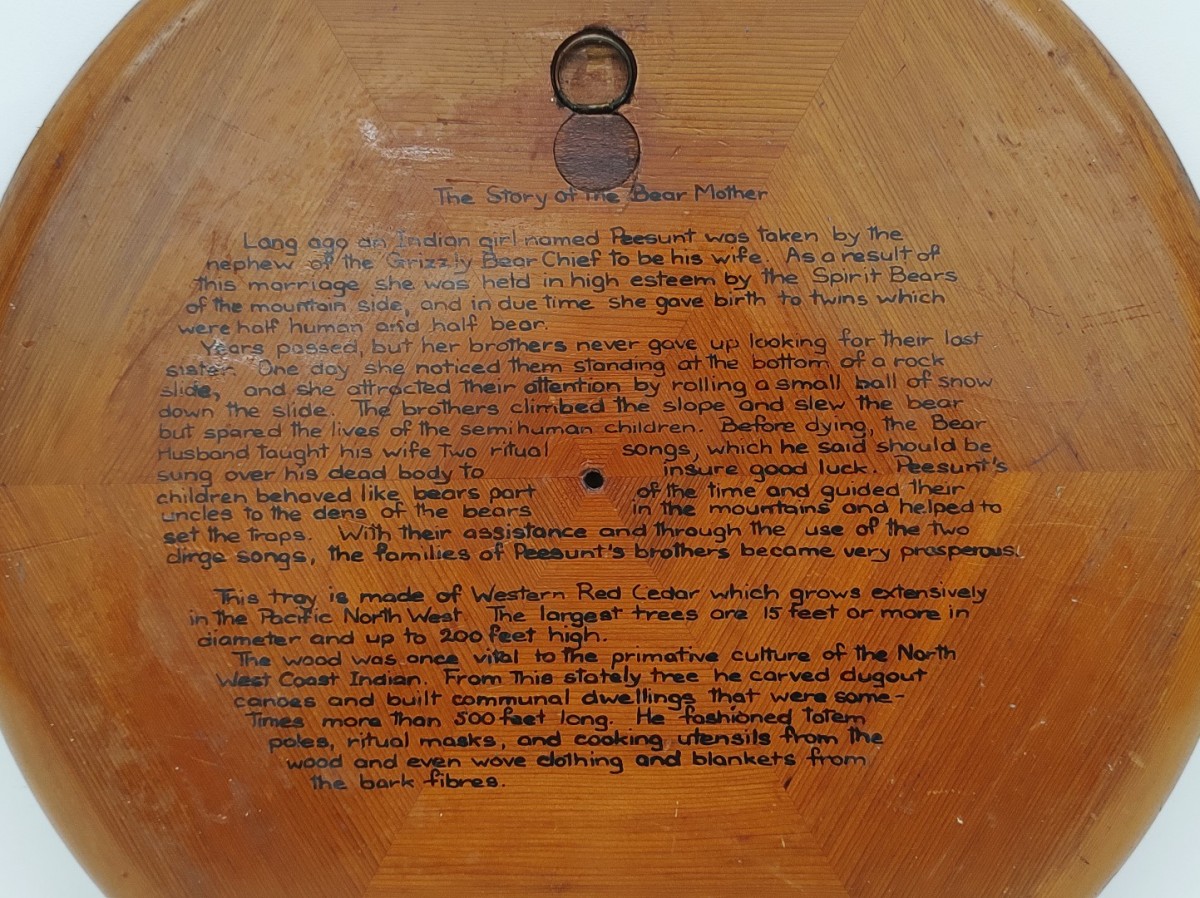 The Story of the Bear Mother
Long ago an Indian girl named Peesunt was taken by the
nephew of the Grizzly Bear Chief to be his wife. As a result of
this marriage she was held in high esteem by the Spirit Bears
of the mountain side, and in due time she gave birth to twins which
were half human and half bear.
Years passed, but her brothers never gave up looking for their lost
sister. One day she noticed them standing at the bottom of a rock
slide, and she attracted their attention by rolling a small ball of snow
down the slide. The brothers climbed the slope and slew the bear
but spared the lives of the semihuman children. Before dying, the Bear
Husband taught his wife two ritual songs, which he said should be
sung over his dead body to insure good luck. Peesunt's
children behaved like bears part of the time and guided their
uncles to the dens of the bears in the mountains and helped to
set the traps. With their assistance and through the use of the two
dirge songs, the families of Peesunt's brothers became very prosperous.
This tray is made of Western Red Cedar which grows extensively
in the Pacific North West. The largest trees are 15 feet or more in
diameter and up to 200 feet high.
The wood was once vital to the primative culture of the North
West Coast Indian. From this stately tree he carved dugout
canoes and built communal dwellings that were some-
times more than 500 feet long. He fashioned totem
poles, ritual masks, and cooking utensils from the
wood and even wove clothing and blankets from
the bark fibres.